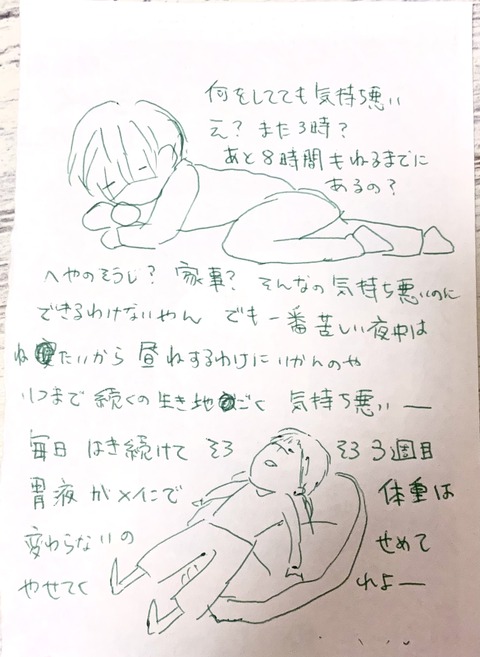 何をしてても気持ち悪い
え？まだ3時？
あと8時間もねるまでに
あるの？
へやのそうじ？家事？そんなの気持ち悪いのに
できるわけないやん でも一番苦しい夜中は
ねたいから昼ねするわけにいかんのや
いつまで続くの生き地ごく 気持ち悪いー
毎日はき続けてそろそろ3週目
胃液がメインで体重は
変わらないのせめて
やせてくれよー